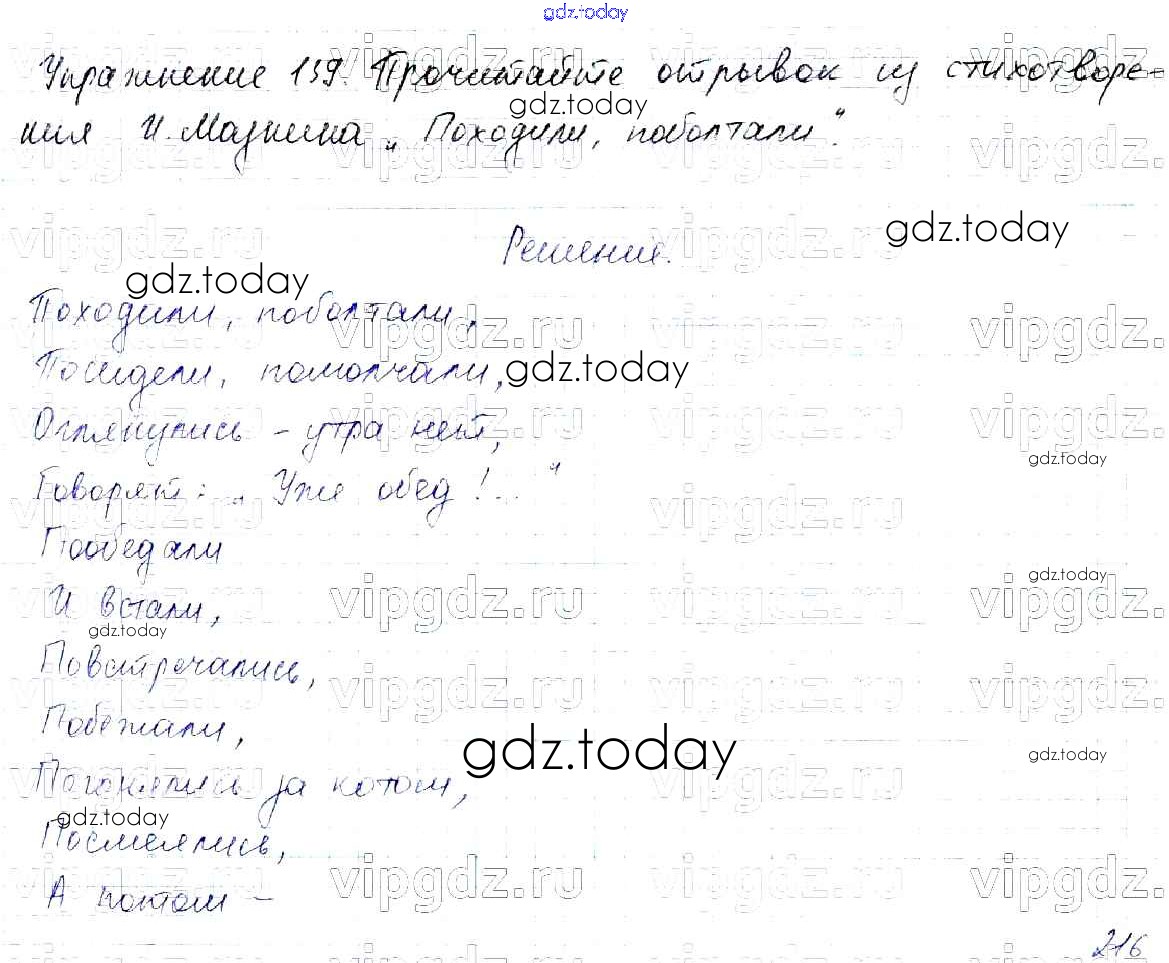 gdz.today
Упражнение 139. Прочитайте отрывок из стихотворе-
ния И. Мазнина „Походили, поболтали“.
Решение.
Походили, поболтали,
Посидели, помолчали,
Оглянулись – утра нет,
Говорят: „Уже обед!...“
Пообедали
И встали,
Повстречались,
Побежали,
Погонялись за котом,
Посмеялись,
А потом –
216